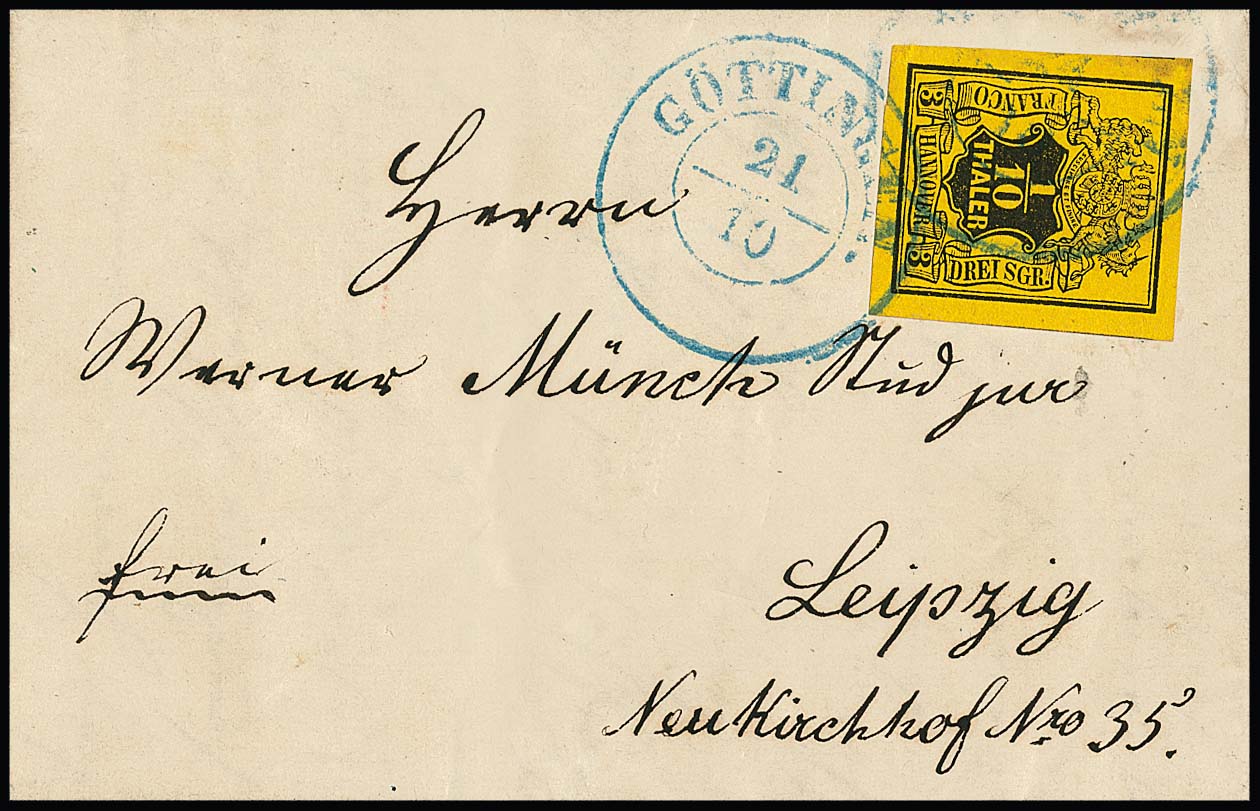 GÖTTINGEN
21
10
FRANCO
3 HANNOVER 3
1
10
THALER
DREI SGR.
Herrn
Werner Münch Stud jur
frei
Leipzig
Neukirchhof Nro 35.